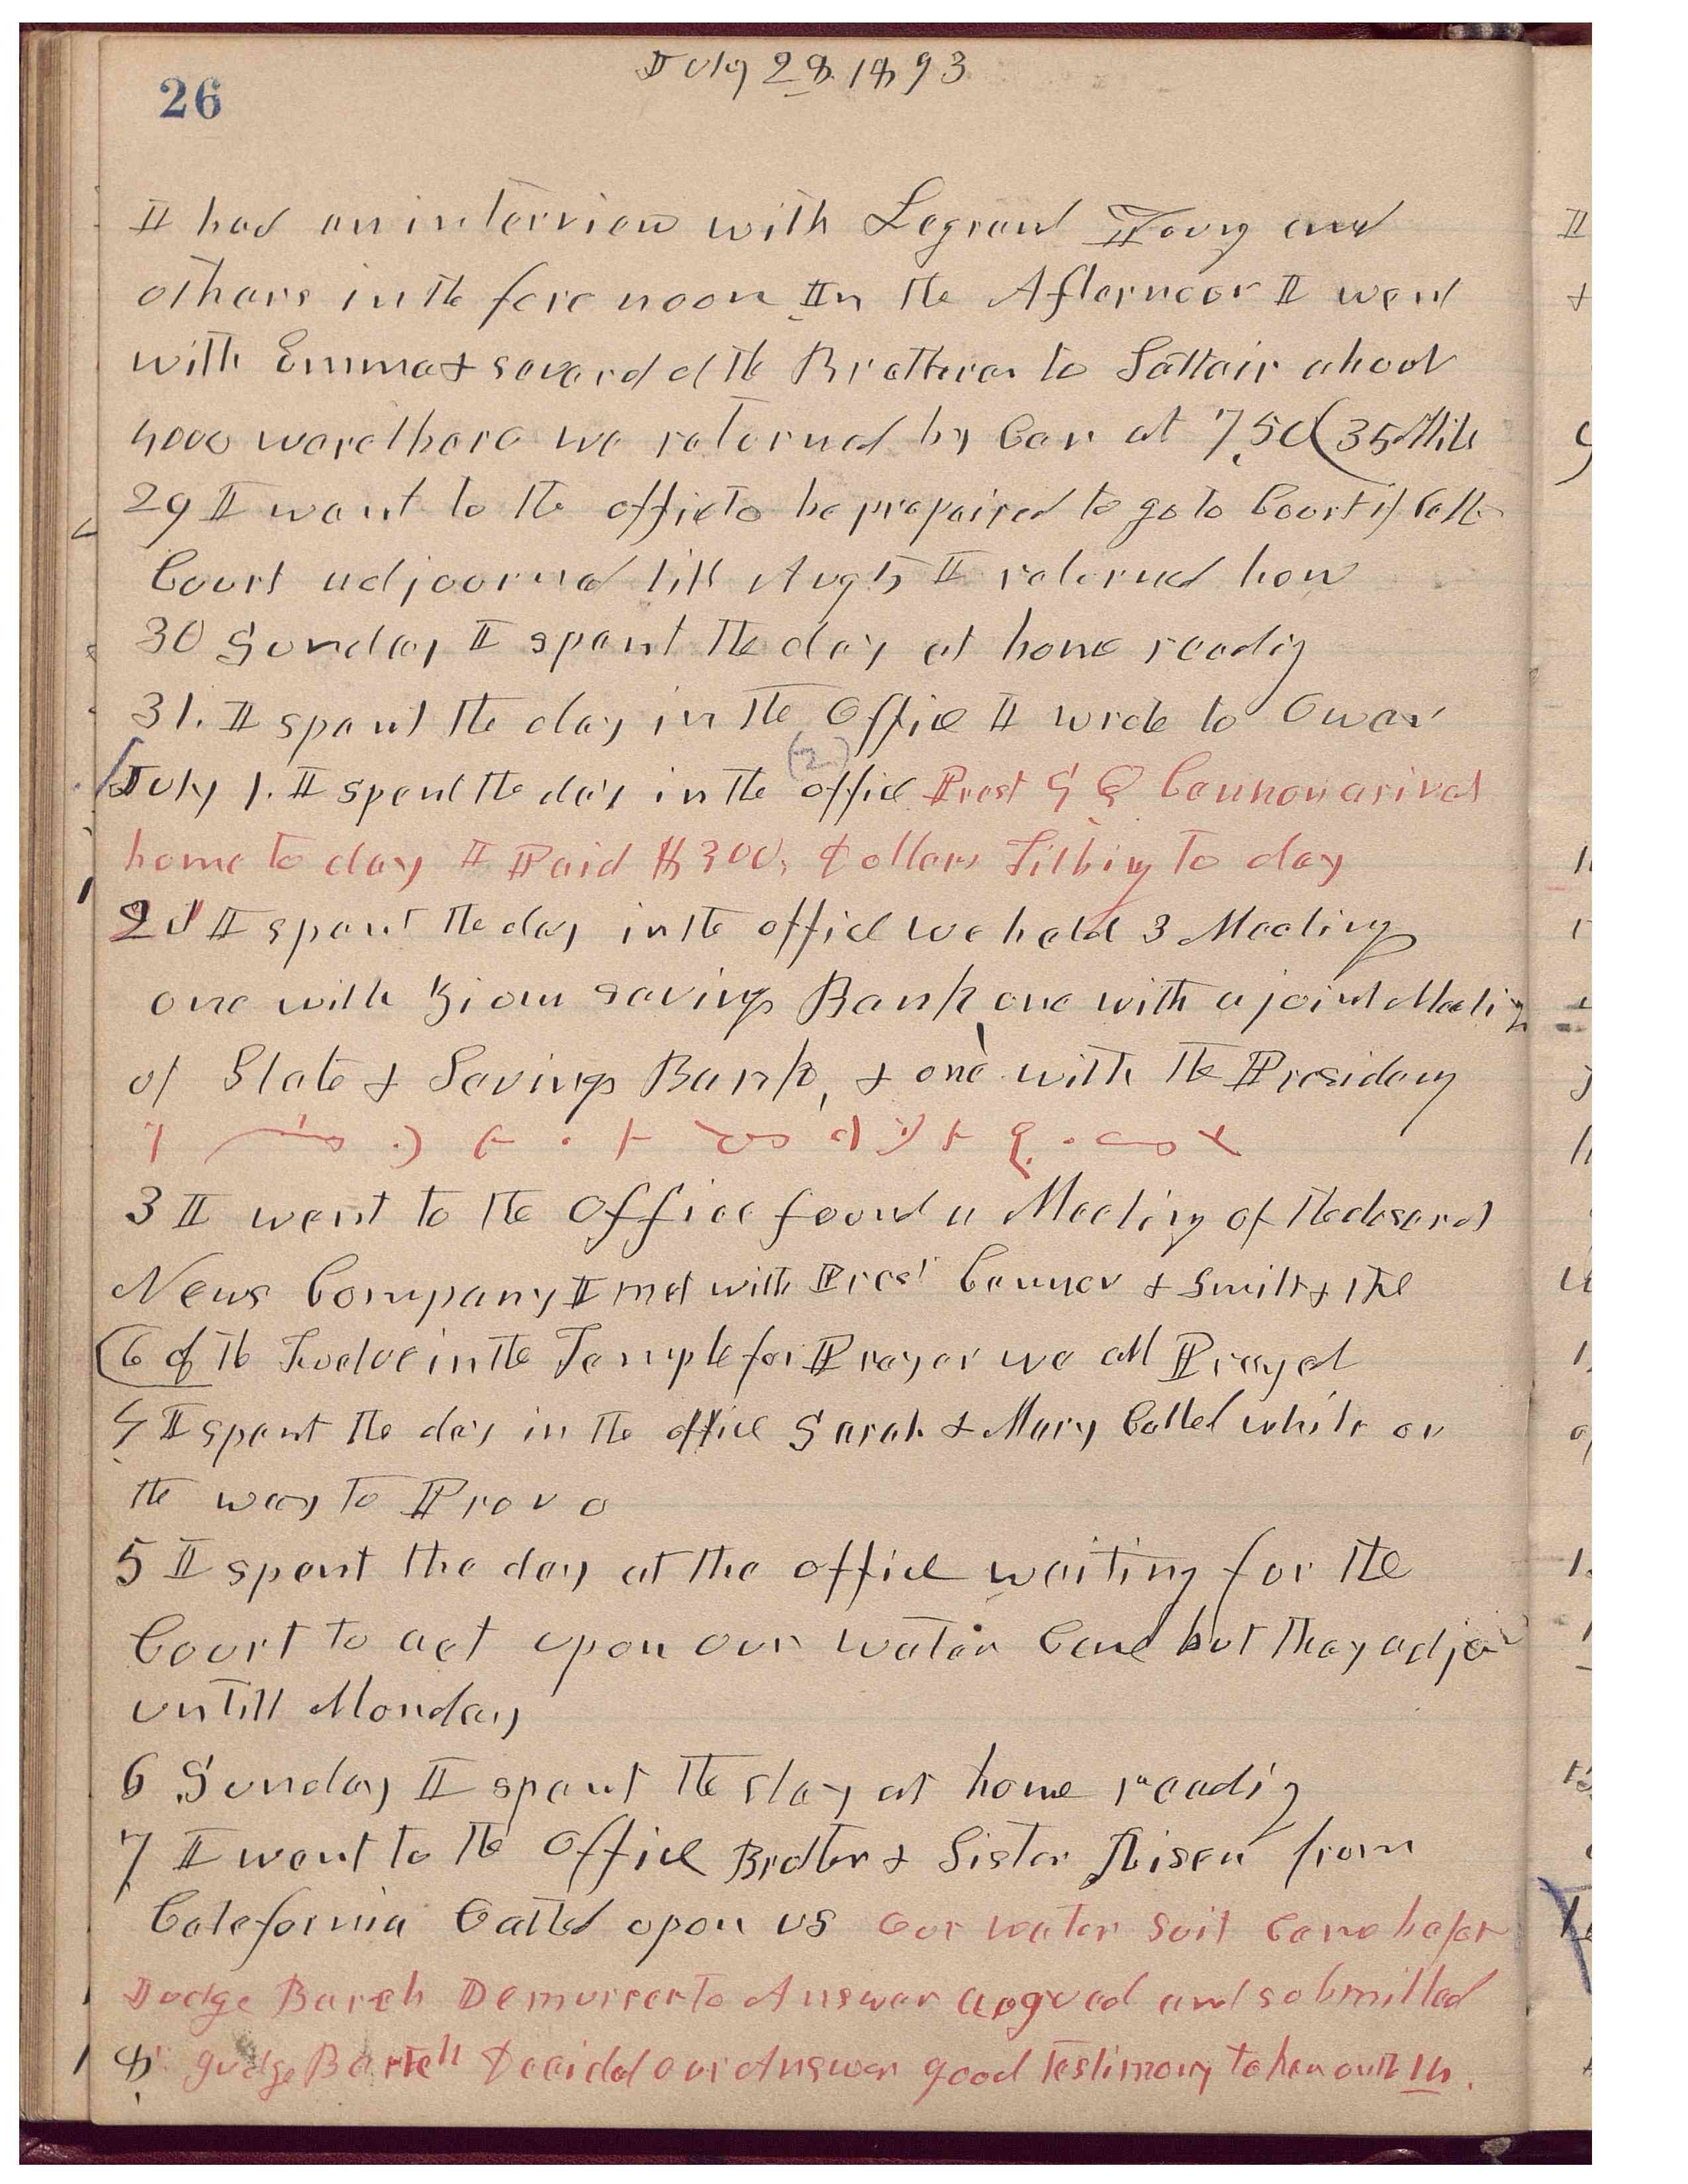 July 28. 1893
26
I had an interview with Legrand Young and
others in the fore noon In the Afternoon I went
with Emma & several of the Brethren to Saltair about
4000 were there we returned by Car at 7,50 (35 Mils
29 I want to the office to be prepaired to go to Court if Call
Court adjourned till Aug 5 I returned hom
30 Sunday I spent the day at home readig
31. I spent the day in the Office I wrote to Owen
(2)
July 1. I spent the day in the office Prest G Q Cannon arived
home to day I Paid $300, Dollars Tithing to day
2d I spent the day in the office we held 3 Meeting
one with Zions savings Bank, one with a joint Meeting
of State & Savings Bank, & one with the Presidency
3 I went to the Office found a Meeting of the deseret
News Company I met with Prest Cannon & Smith & the
6 of the Twelve in the Temple for Prayer we all Prayed
4 I spent the day in the office Sarah & Mary Called while on
the way to Provo
5 I spent the day at the office waiting for the
Court to act upon our water Case but they adjor
untill Monday
6 Sunday I spent the day at home readig
7 I went to the Office Brother & Sister from
Calefornia Called upon us Our water Suit Came befor
Judge Barch Demurrer to Answer argued and submitted
8 Judge Bartch Decided our Answer good Testimony to be on the 14.